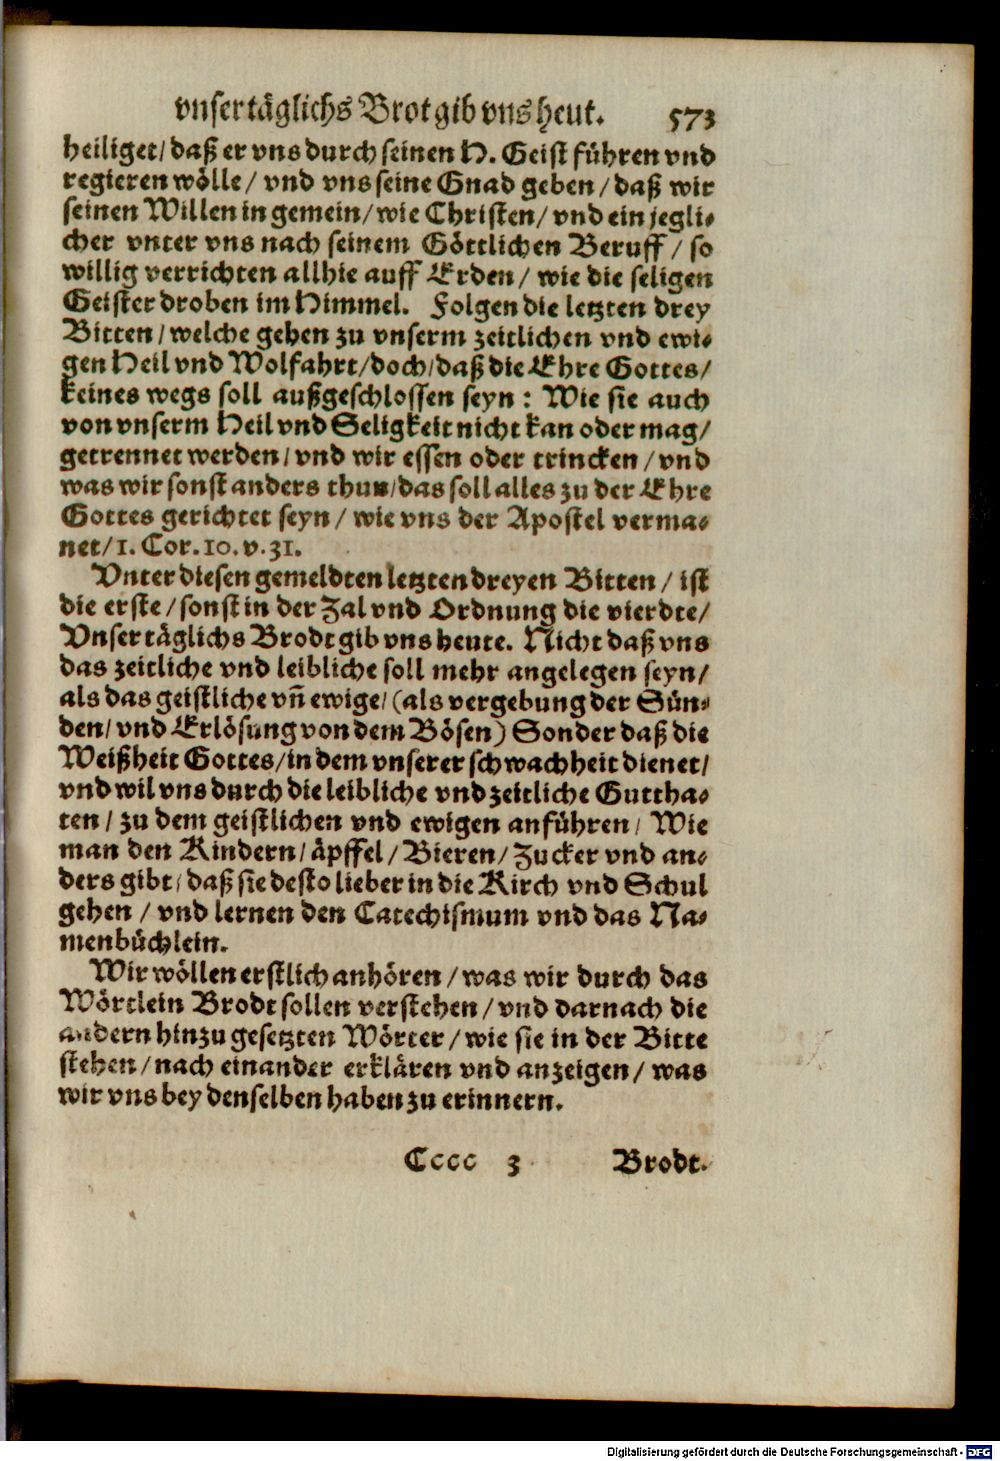 vnser täglichs Brot gib vns heut. 573
heiliget/ daß er vns durch seinen H. Geist führen vnd
regieren wölle/ vnd vns seine Gnad geben/ daß wir
seinen Willen in gemein/ wie Christen/ vnd ein jegli⸗
cher vnter vns nach seinem Göttlichen Beruff/ so
willig verrichten allhie auff Erden/ wie die seligen
Geister droben im Himmel. Folgen die letzten drey
Bitten/ welche gehen zu vnserm zeitlichen vnd ewi⸗
gen Heil vnd Wolfahrt/ doch/ daß die Ehre Gottes/
keines wegs soll außgeschlossen seyn: Wie sie auch
von vnserm Heil vnd Seligkeit nicht kan oder mag/
getrennet werden/ vnd wir essen oder trincken/ vnd
was wir sonst anders thun/ das soll alles zu der Ehre
Gottes gerichtet seyn/ wie vns der Apostel verma⸗
net/ 1. Cor. 10. v. 31.
Vnter diesen gemeldten letzten dreyen Bitten/ ist
die erste/ sonst in der Zal vnd Ordnung die vierdte/
Vnser täglichs Brodt gib vns heute. Nicht daß vns
das zeitliche vnd leibliche soll mehr angelegen seyn/
als das geistliche vn̄ ewige/ (als vergebung der Sün⸗
den/ vnd Erlösung von dem Bösen) Sonder daß die
Weißheit Gottes/ in dem vnserer schwachheit dienet/
vnd wil vns durch die leibliche vnd zeitliche Guttha⸗
ten/ zu dem geistlichen vnd ewigen anführen/ Wie
man den Kindern/ äpffel/ Bieren/ Zucker vnd an⸗
ders gibt/ daß sie desto lieber in die Kirch vnd Schul
gehen/ vnd lernen den Catechismum vnd das Na⸗
menbüchlein.
Wir wöllen erstlich anhören/ was wir durch das
Wörtlein Brodt sollen verstehen/ vnd darnach die
andern hinzu gesetzten Wörter/ wie sie in der Bitte
stehen/ nach einander erklären vnd anzeigen/ was
wir vns bey denselben haben zu erinnern.
Cccc 3 Brodt.
Digitalisierung gefördert durch die Deutsche Forschungsgemeinschaft - DFG